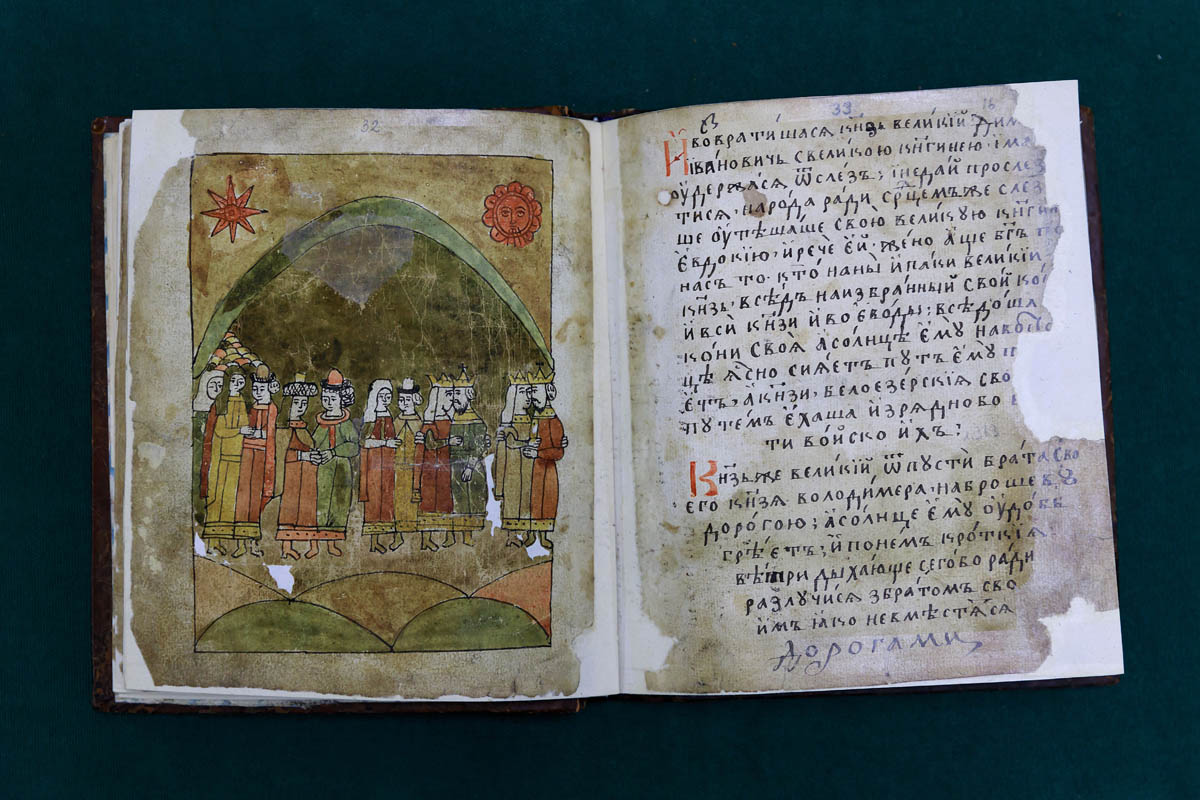 32
33
16
И возвратишася кн҃зь великїй Дим
Ивановичь свеликою кн҃гинею, ї ма
оудержася ѿслезъ; їнедай прослез
тися, народа ради ср҃цемъже слез
ше оутѣшаше свою великую кн҃гин
Евдокию, и рече ей, жено аще бг҃ъ по
насъ то, кто наны и паки великїй
кн҃зь, всѣдъ наизбранный свой ко
и вси кн҃зи и воеводы; всѣдоша
кони своя асолнце ему наво
цѣ ясно сияетъ путь ему п
етъ, акн҃зи, белоезерскїя сво
путемъ ѣхаша изрядно бо
ти войско ихъ;
Кн҃зь же великїй ѿпусти брата сво
его кн҃зя володимера, наброшеву
дорогою; асолнце ему оудобь
грѣетъ; и понемъ кроткїя
вѣтри дыхающе сего бо ради
разлучися збратомъ сво
имъ яко невмѣстяся
дорогами